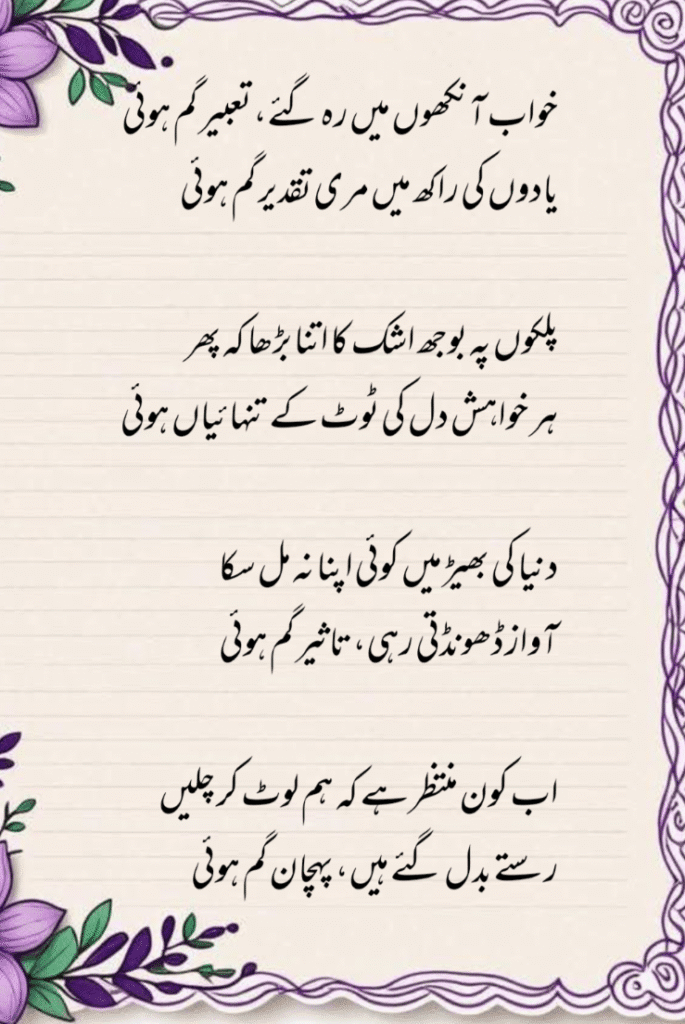 خواب آنکھوں میں رہ گئے، تعبیر گم ہوئی
یادوں کی راکھ میں مری تقدیر گم ہوئی
پلکوں پہ بوجھ اشک کا اتنا بڑھا کہ پھر
ہر خواہش دل کی ٹوٹ کے تنہائیاں ہوئی
دنیا کی بھیڑ میں کوئی اپنا نہ مل سکا
آواز ڈھونڈتی رہی، تاثیر گم ہوئی
اب کون منتظر ہے کہ ہم لوٹ کر چلیں
رستے بدل گئے ہیں، پہچان گم ہوئی